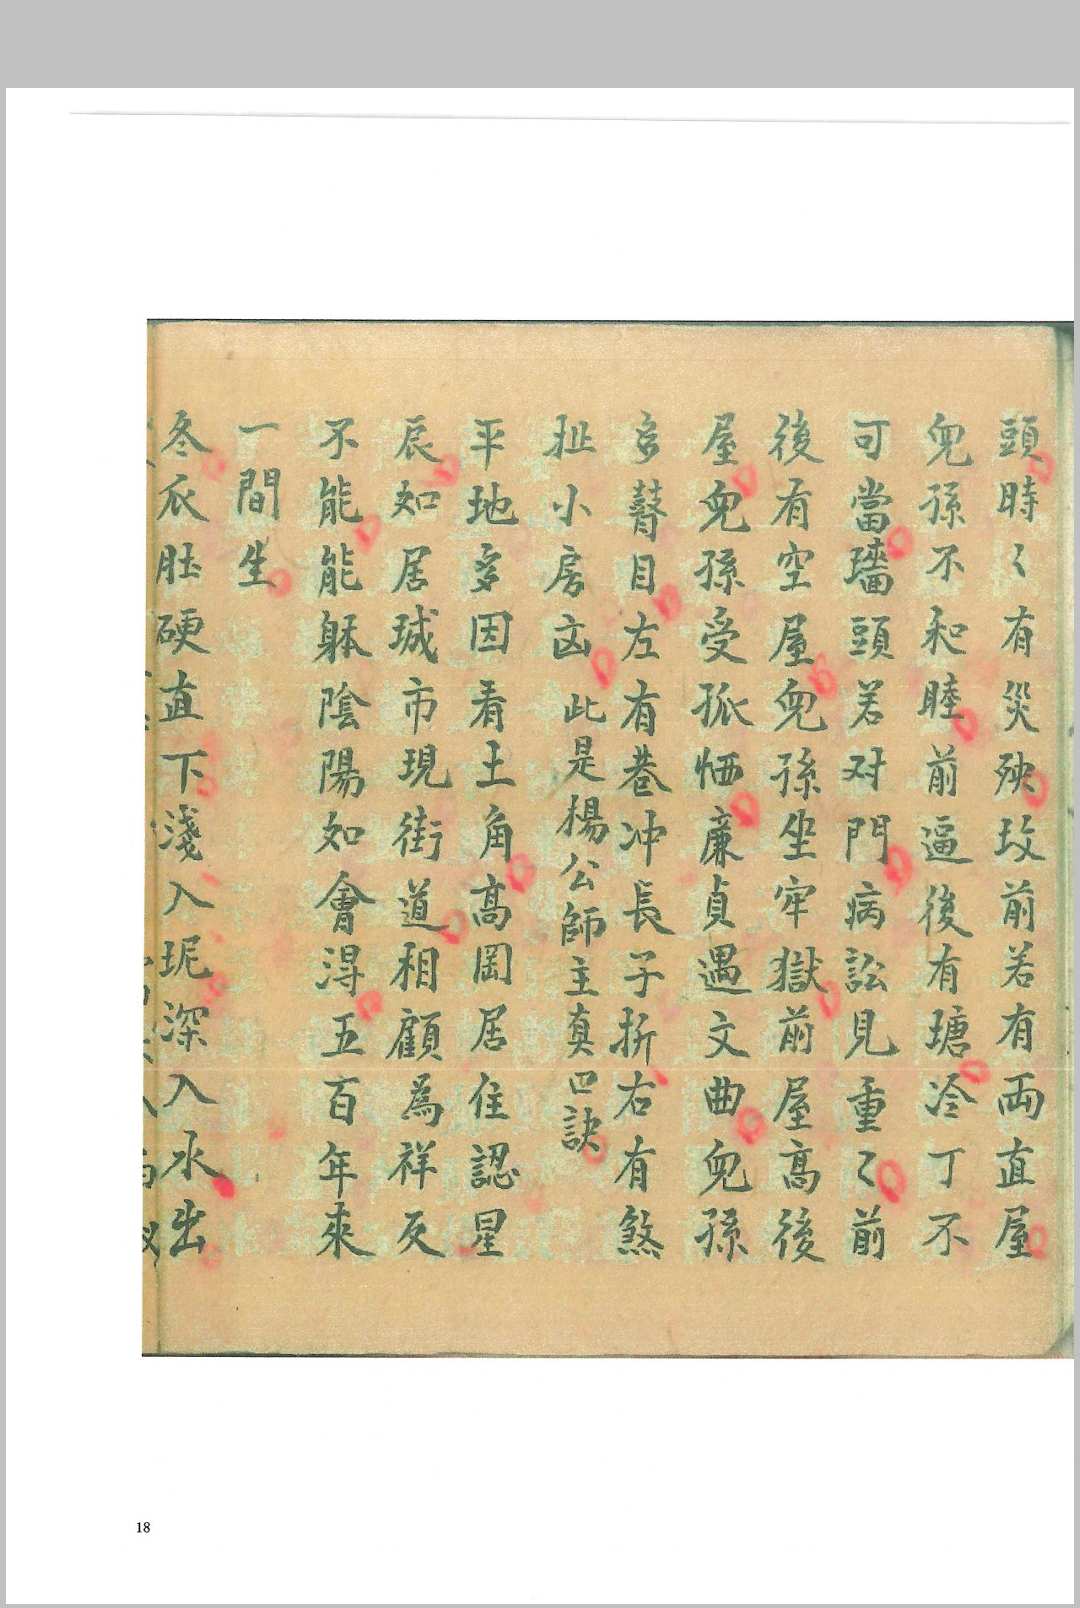 頭時〻有災殃坟前若有両直屋
兒孫不和睦前逼後有塘冷丁不
可當墻頭若对門病訟見重〻前
後有空屋兒孫坐牢獄前屋高後
屋兒孫受孤恓廉貞遇文曲兒孫
多瞽目左有巷冲長子折右有煞
扯小房凶 此是楊公師主真口訣
平地多因看土角高岡居住認星
辰如居城市現街道相顧為祥反
不能能躲陰陽如會淂五百年來
一間生
冬瓜肚硬直下淺入坭深入水出
18